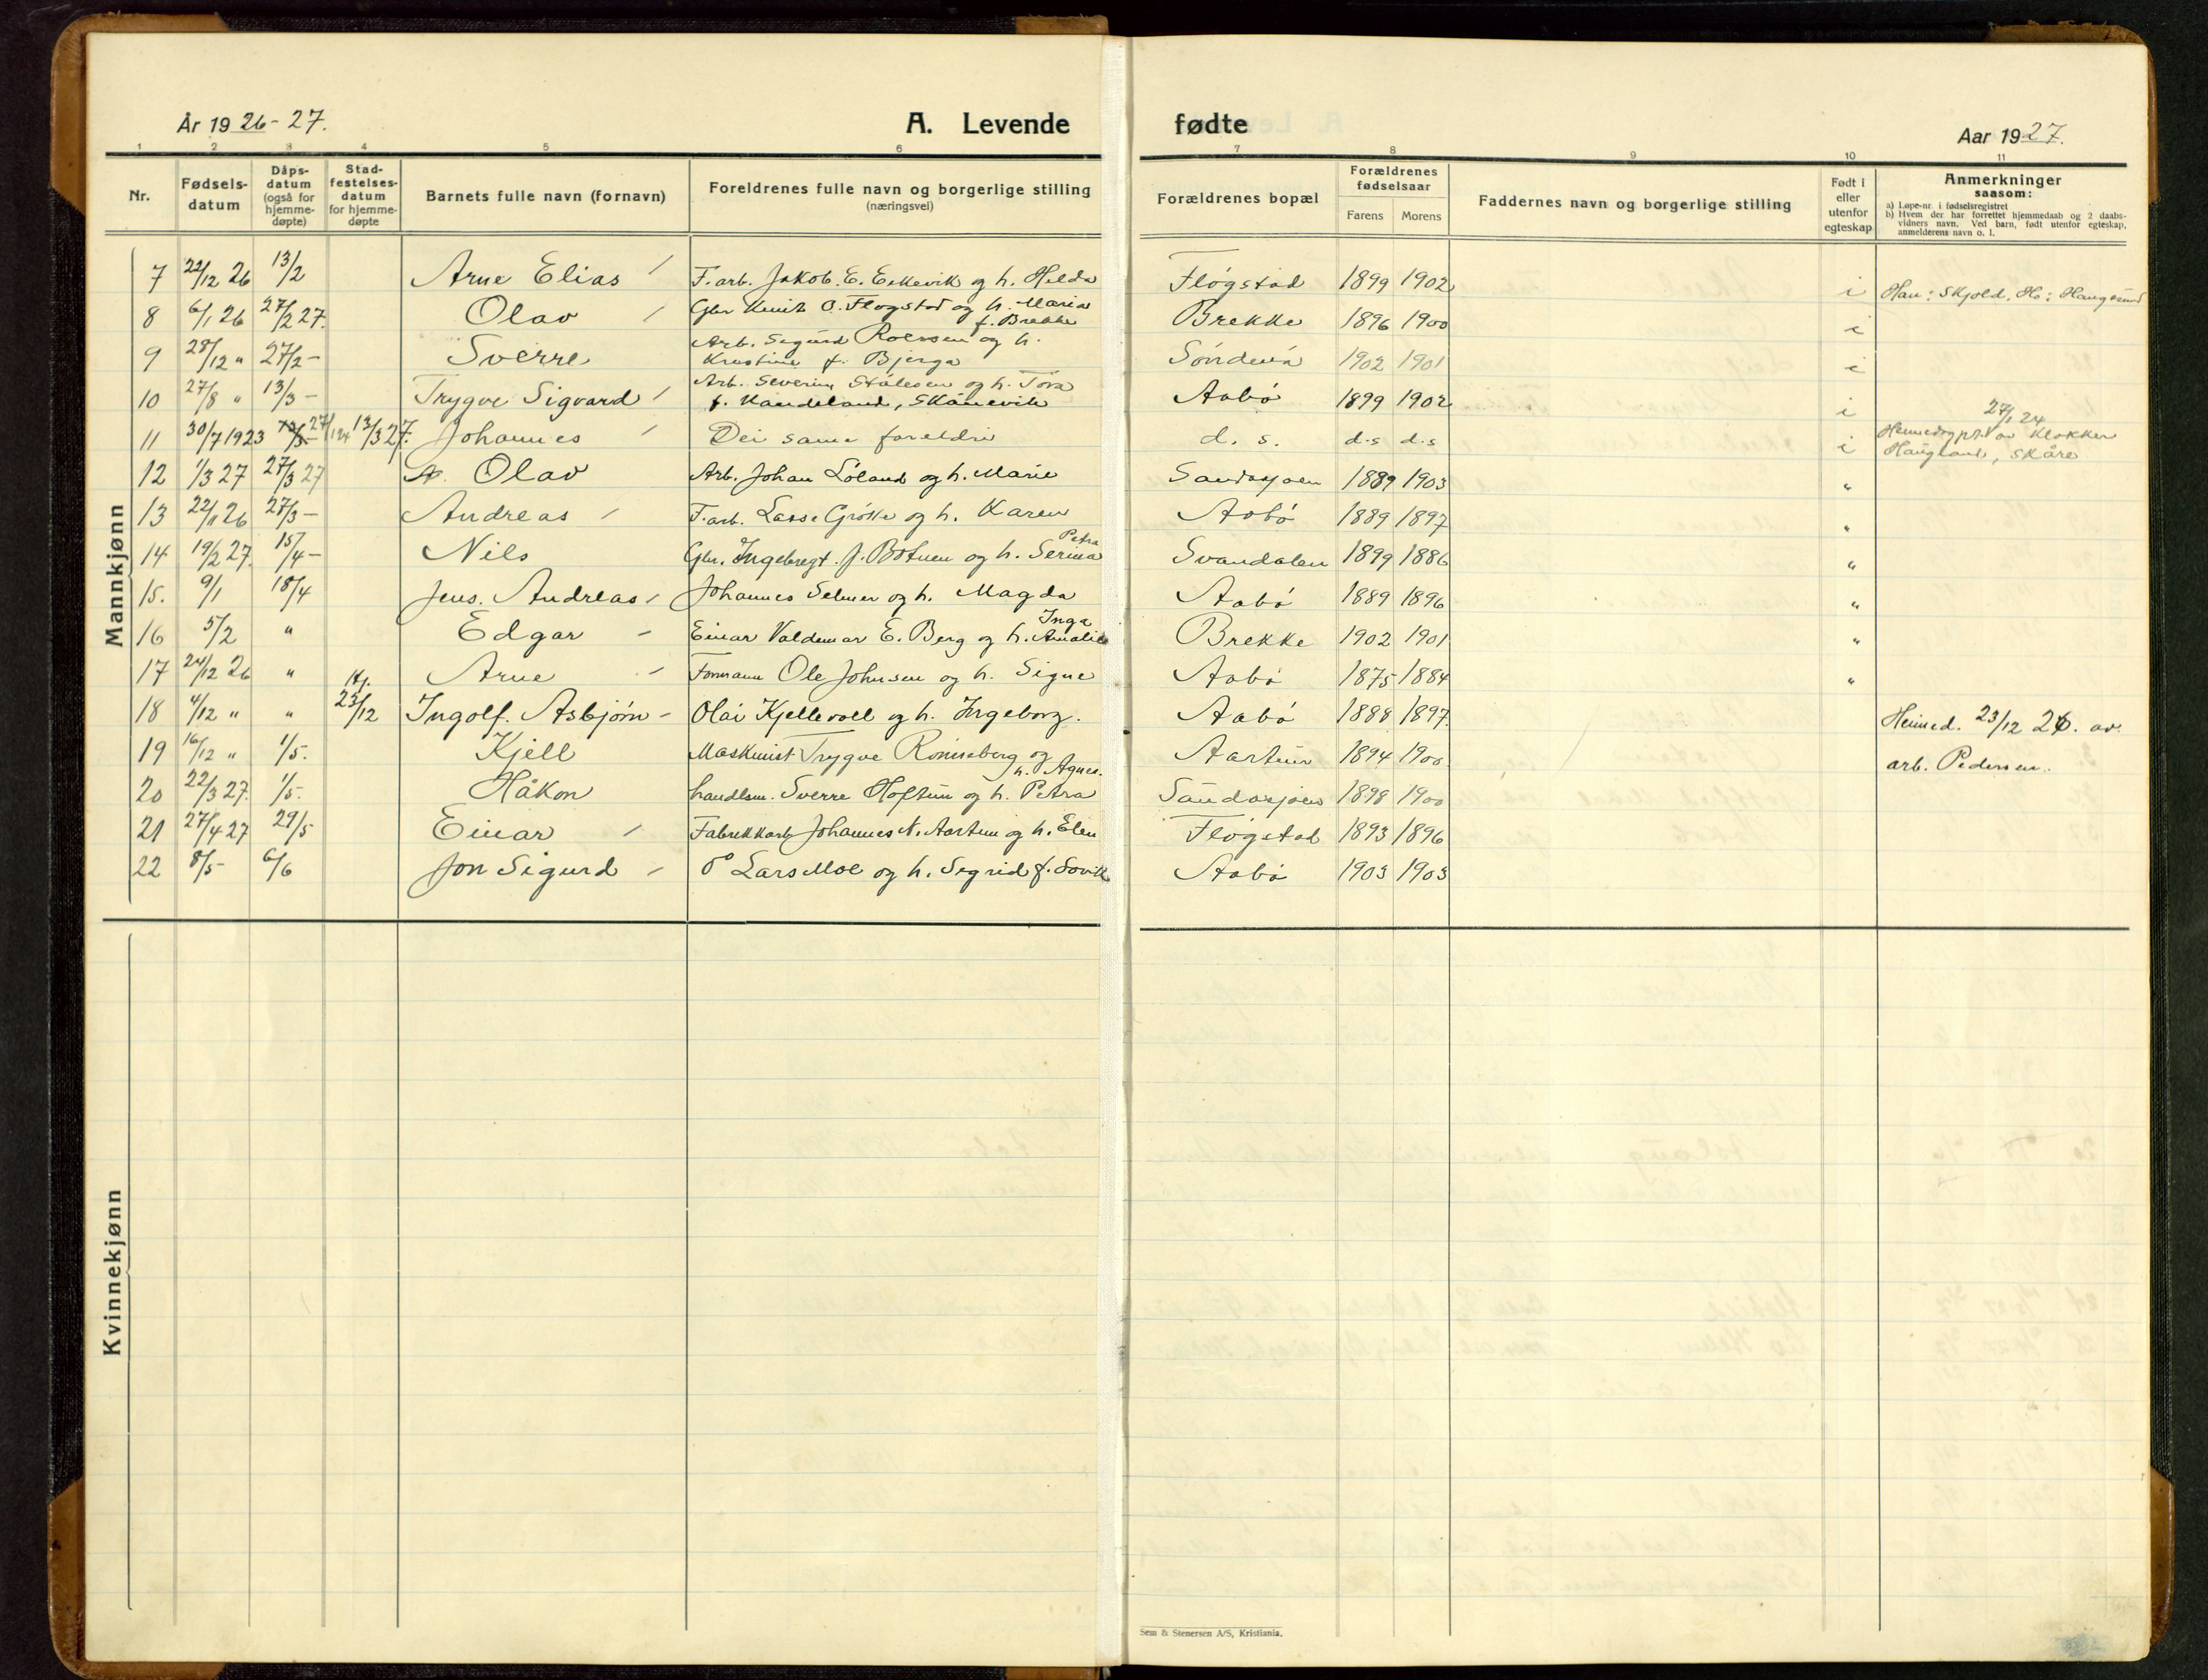 År 1926-27.
A. Levende
fødte
Aar 1927.
1 2 3 4 5 6 7 8 9 10 11
Nr.
Fødsels-datum
Dåps-datum (også for hjemme-døpte)
Stad-festelses-datum for hjemme-døpte
Barnets fulle navn (fornavn)
Foreldrenes fulle navn og borgerlige stilling
(næringsvei)
Forældrenes bopæl
Forældrenes fødselsaar
Farens Morens
Faddernes navn og borgerlige stilling
Født i eller utenfor egteskap
Anmerkninger
saasom:
a) Løpe-nr. i fødselsregistret
b) Hvem der har forrettet hjemmedaab og 2 daabs-
vidners navn. Ved barn, født utenfor egteskap,
anmelderens navn o. l.
Mannkjønn
7 22/12 26 13/2 Arne Elias F.arb. Jakob. E. Eskevik og h. Helda Fløgstad 1899 1902 i Han: Skjold. Ho: Haugesund
8 6/1 26 27/2 27. Olav Gbr Knut O. Fløgstad og h. Maria f. Brekke Brekke 1896 1900 i
9 28/12 " 27/2 - Sverre Arb. Sigurd Roevsen og h.
Kristine f. Bjerga Søndenå 1902 1901 i
10 27/8 " 13/3 - Trygve Sigvard Arb. Severin Stålesen og h. Tora
f. Kandeland, Skånevik Aabø 1899 1902 i
11 30/7 1923 27/1 124 13/3 27. Johannes Dei same foreldre d. s. d.s d.s i 27/1 24
Heimedøpt av Klokker
Haugland, Skåre
12 1/3 27 27/3 27 Olav Arb. Johan Løland og h. Marie Sandsgjoen 1889 1903 "
13 22/11 26 27/3 - Andreas F.arb. Lasse Grøtte og h. Karen Aabø 1889 1897 "
14 19/2 27. 15/4 - Nils Gbr. Ingebregt. J. Botnen og h. Serina Petra Svandalen 1899 1886 "
15. 9/1 18/4 Jens. Andreas Johannes Selmer og h. Magda Aabø 1889 1896 "
16 5/2 " Edgar Einar Valdemar E. Berg og h. Inga Amalie Brekke 1902 1901 "
17 24/12 26 " Arne Formann Ole Johnsen og h. Signe Aabø 1875 1884 "
18 4/12 " " Hj. 23/12 Ingolf. Asbjørn - Olai Kjellevoll og h. Ingeborg. Aabø 1888 1897. Heimed. 23/12 26. av.
arb. Pedersen.
19 16/12 " 1/5. Kjell Maskinist Trygve Ronneberg og
h. Agnes. Aartun 1894 1900
20 22/3 27. 1/5. Håkon handlsm. Sverre Hoftun og h. Petra Sandsgjoen 1898 1900
21 27/4 27 29/5 Einar Fabrikkarb Johannes N. Aartun og h. Elen Fløgstad 1893 1896
22 8/5 - 6/6 Jon Sigurd Lars Moe og h. Sigrid f. Søvik Aabø 1903 1903
Kvinnekjønn
Sem & Stenersen A/S, Kristiania.